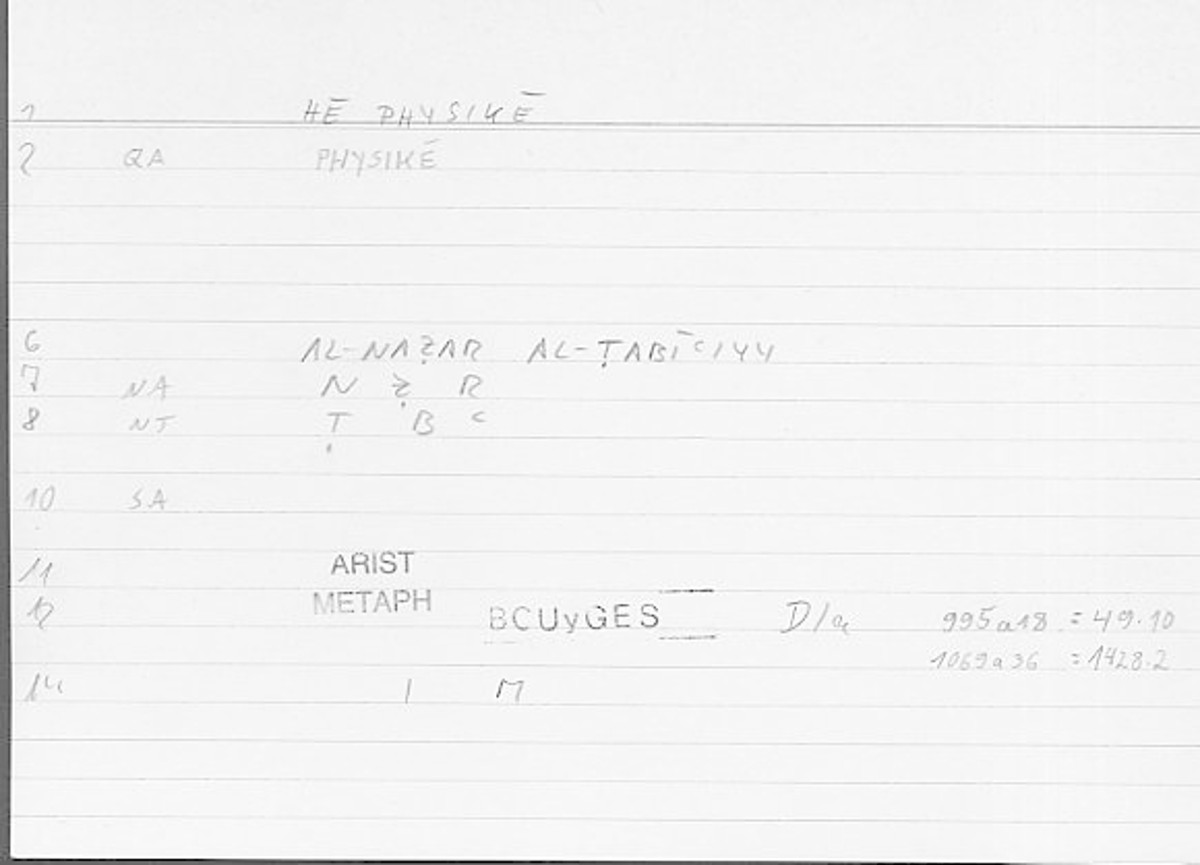 1 HĒ PHYSIKĒ
2 QA PHYSIKĒ
6 AL-NAẒAR AL-ṬABĪʿIYY
7 NA N Ẓ R
8 NJ Ṭ B ʿ
10 SA
11 ARIST
12 METAPH BOUyGES D/a 995a18 = 49.10
1069a36 = 1428.2
14 1 M